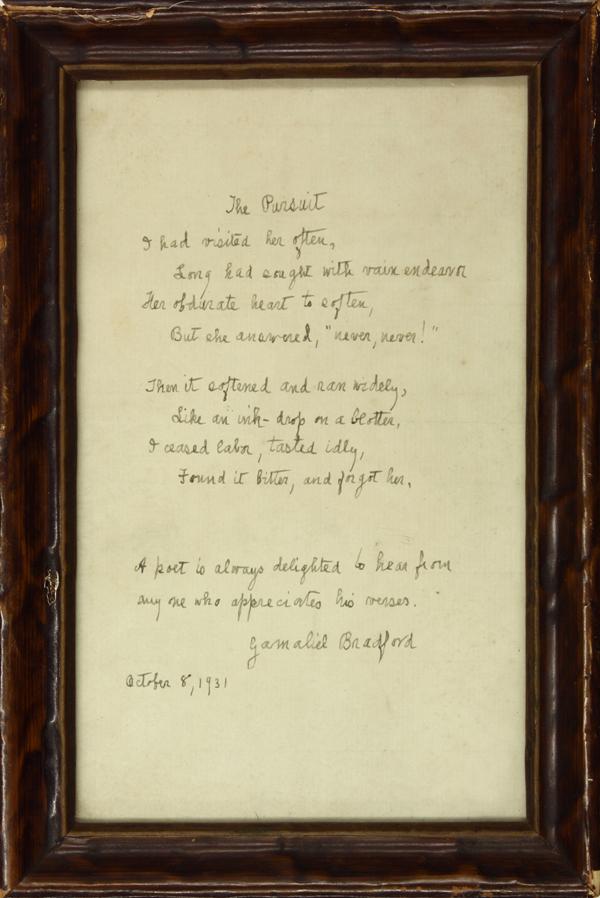 The Pursuit
I had visited her often,
Long had sought with vain endeavor
Her obdurate heart to soften,
But she answered, "never, never!"
Then it softened and ran widely,
Like an ink-drop on a blotter,
I ceased labor, tasted idly,
Found it bitter, and forgot her.
A poet is always delighted to hear from
any one who appreciates his verses.
Gamaliel Bradford
October 8, 1931